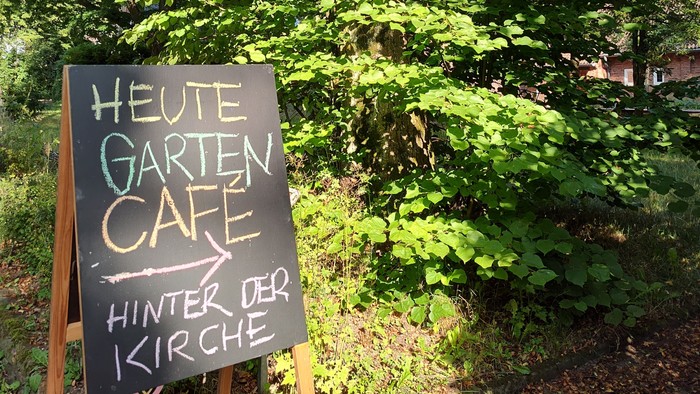 HEUTE
GARTEN
CAFÉ
HINTER DER
KIRCHE